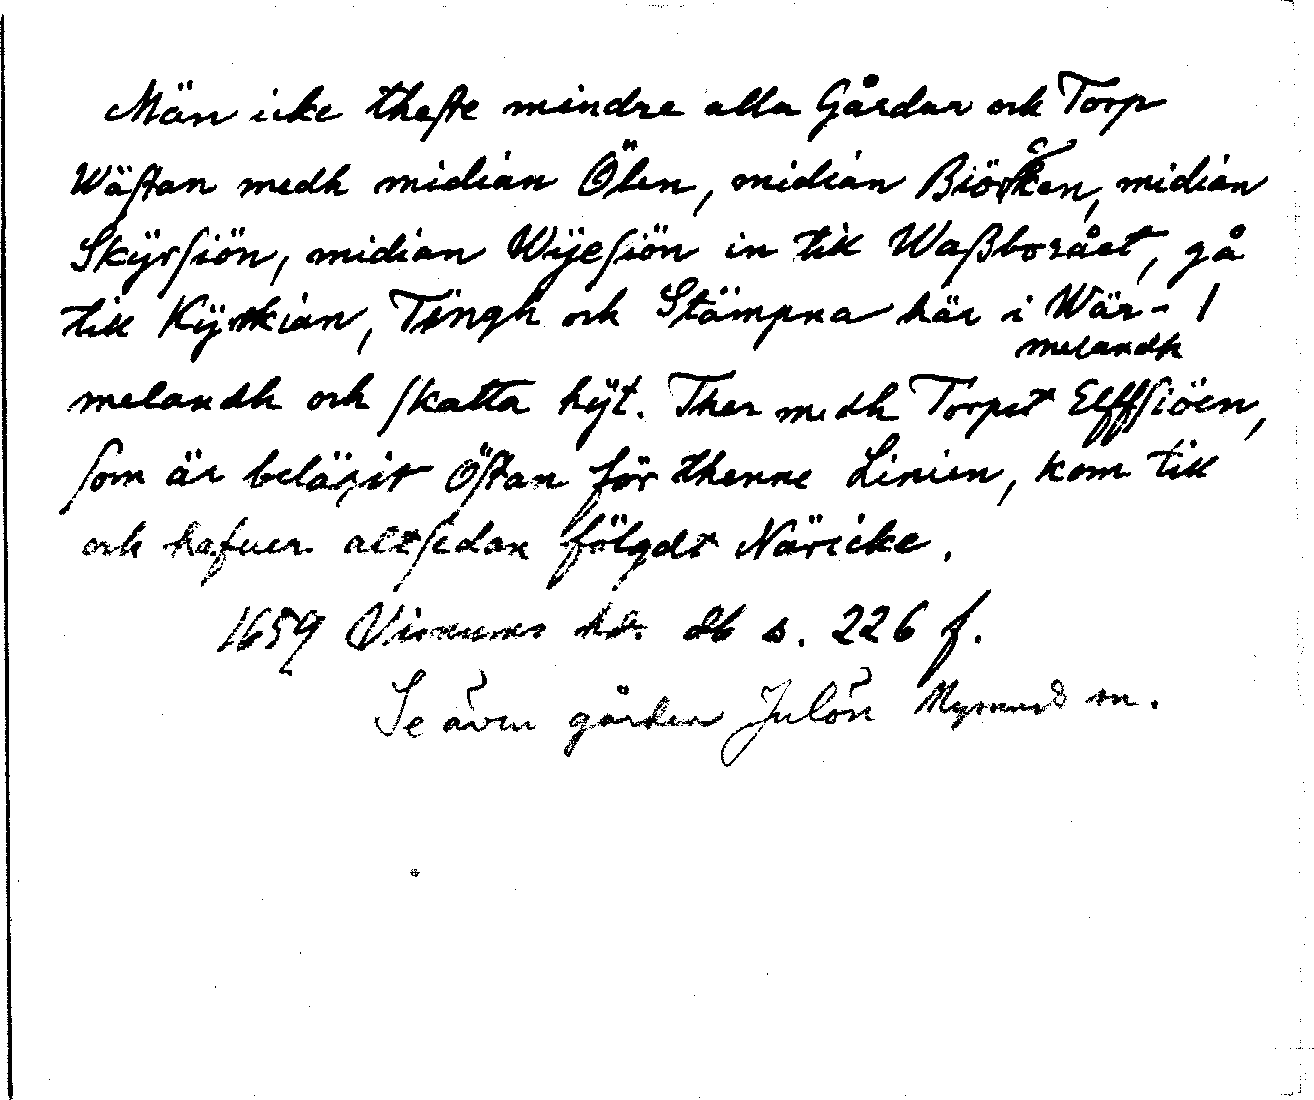 Män icke theſte mindre alla Gårdar och Torp
Wäſtan medh midian Ölen, midian Biörken, midian
Skÿrſiön, midian Wÿeſiön in till Waßborået, gå
till Kÿrkian, Tingh och Stämpna här i Wär- /
melandh
melandh och ſkatta hÿt. Ther medh Torpet Elffſiöen,
ſom är beläget Öſtan för thenne Linien, kom till
och hafuer altſedan fölgdt Näricke.
1659 Visnums hd. db s. 226 f.
Se även gården Julön Nysunds sn.